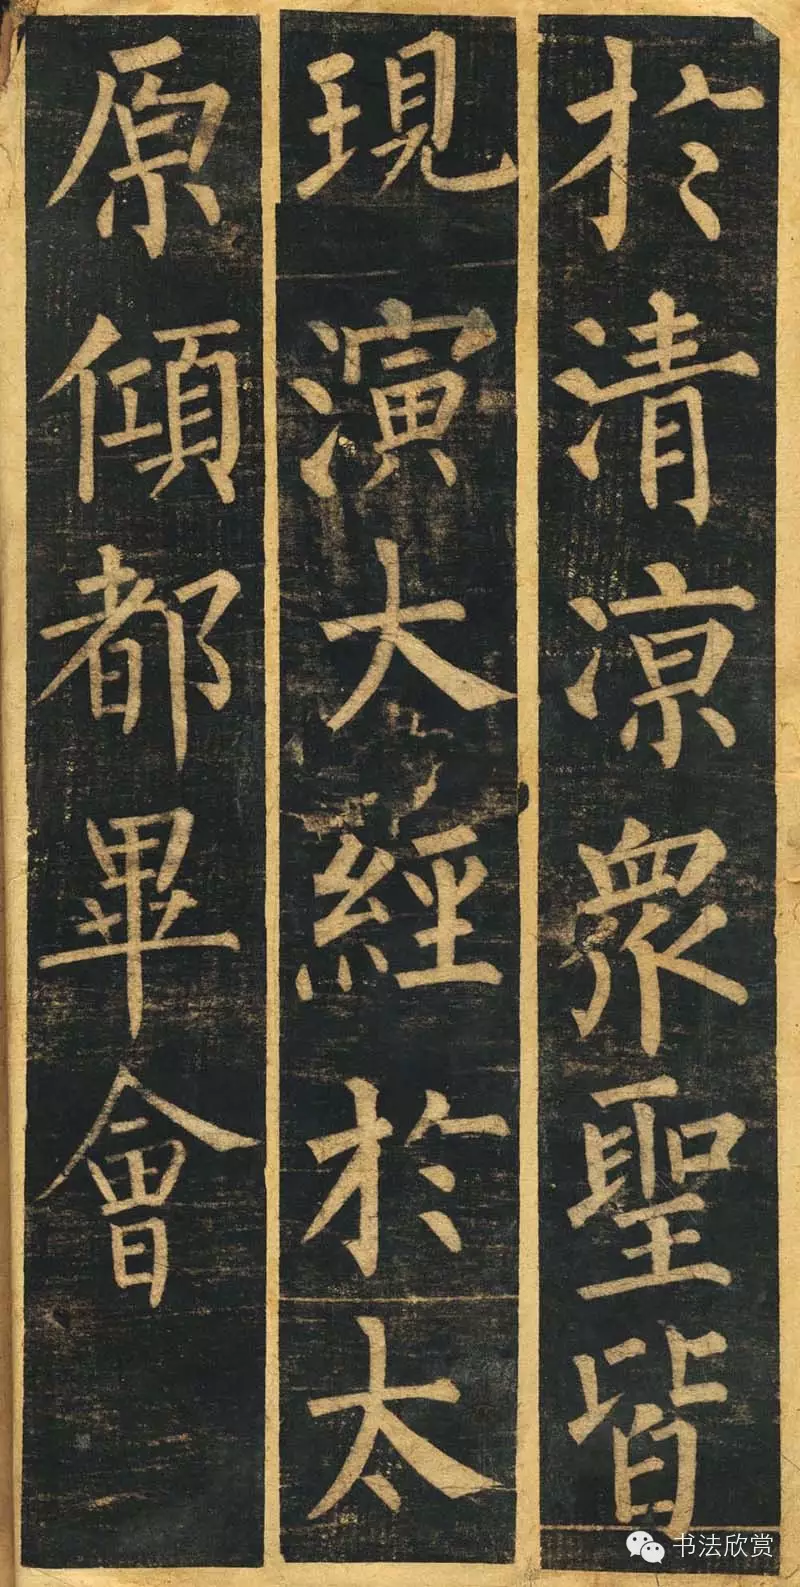 於清涼衆聖皆
現演大經於太
原傾都畢會
书法欣赏